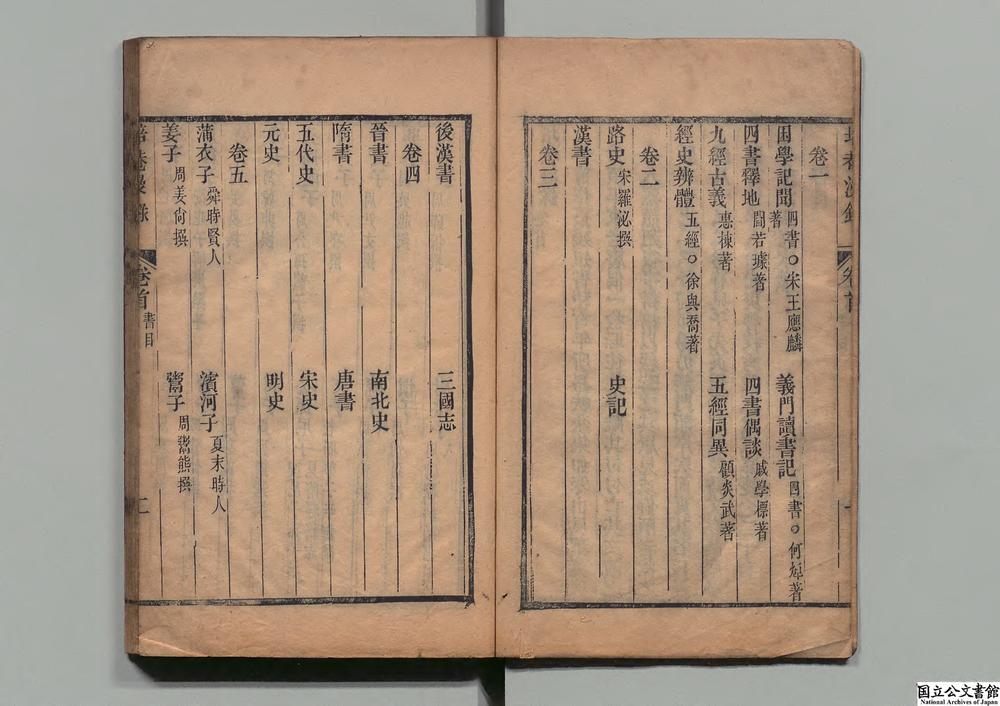 卷一
困學記聞 四書○宋王應麟著 義門讀書記 四書○何焯著
四書釋地 閻若璩著 四書偶談 戚學標著
九經古義 惠棟著 五經同異 顧炎武著
經史辨體 五經○徐與喬著
卷二
路史 宋羅泌撰 史記
漢書
卷三
後漢書 三國志
卷四
晉書 南北史
隋書 唐書
五代史 宋史
元史 明史
卷五
蒲衣子 舜時賢人 濱河子 夏末時人
姜子 周姜尙撰 鬻子 周鬻熊撰
卷首 書目 二
国立公文書館
National Archives of Japan